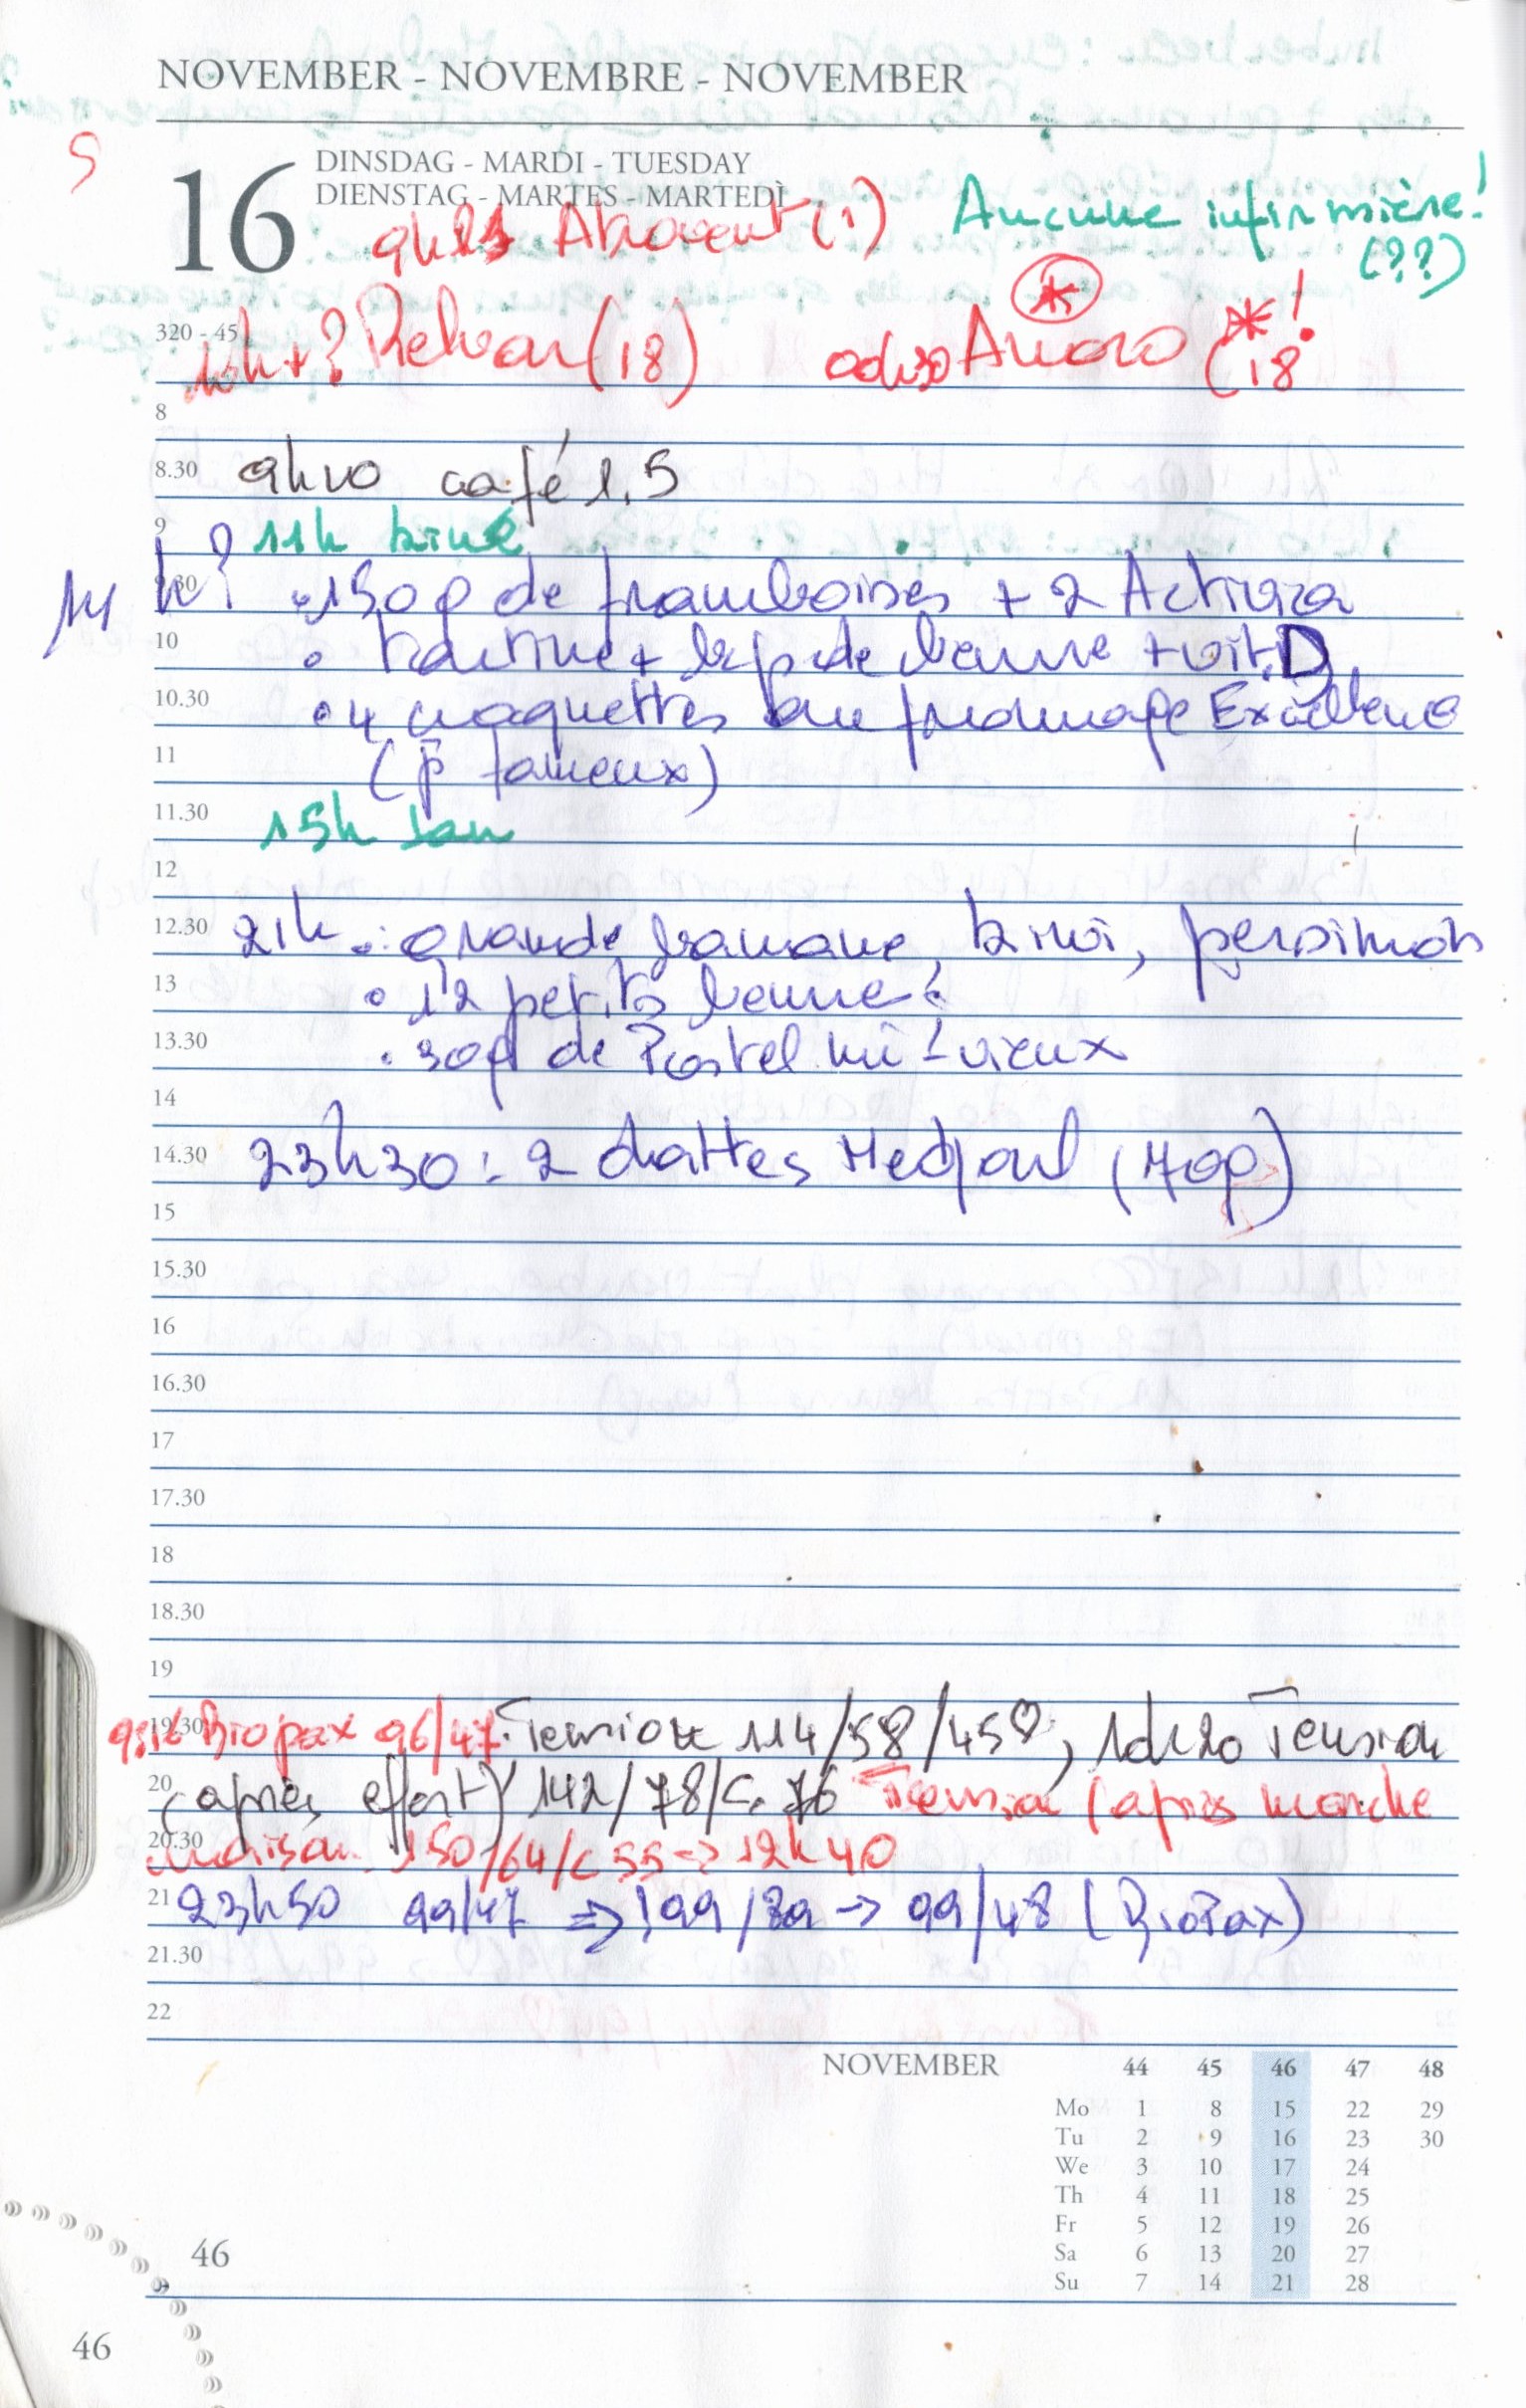 NOVEMBER - NOVEMBRE - NOVEMBER
5
16
DINSDAG - MARDI - TUESDAY
DIENSTAG - MARTES - MARTEDÌ
Atrovent (1) Aucune infirmière!
(??)
320 - 45
10h+? Relvar (18) Anoro (18 *!
8
8.30 9h10 café 1,5
9 11h kiné
14h? 9.30 • 150g de framboises + 2 Activia
10 • tartine + de beurre + vit. D
10.30 • 4 croquettes au fromage Excellence
11 (p fameux)
11.30 15h
12
12.30 21h • : grande banane, kiwi, persimon
13 • 12 petits beurre
13.30 • 30g de Postel mi-vieux
14
14.30 23h30 : 2 dattes Medjoul (40g)
15
15.30
16
16.30
17
17.30
18
18.30
19
19.30 9h16 Biopax 96/47. Tension 114/58/45♡, Tension
20 (après effort) 142/78/c. 76 Tension (après marche
20.30 maison 150/64/c 55 -> 12h40
21 23h50 99/47 => ! 99/39 -> 99/48 (BioPax)
21.30
22
NOVEMBER 44 45 46 47 48
Mo 1 8 15 22 29
Tu 2 9 16 23 30
We 3 10 17 24
Th 4 11 18 25
Fr 5 12 19 26
Sa 6 13 20 27
Su 7 14 21 28
46
46